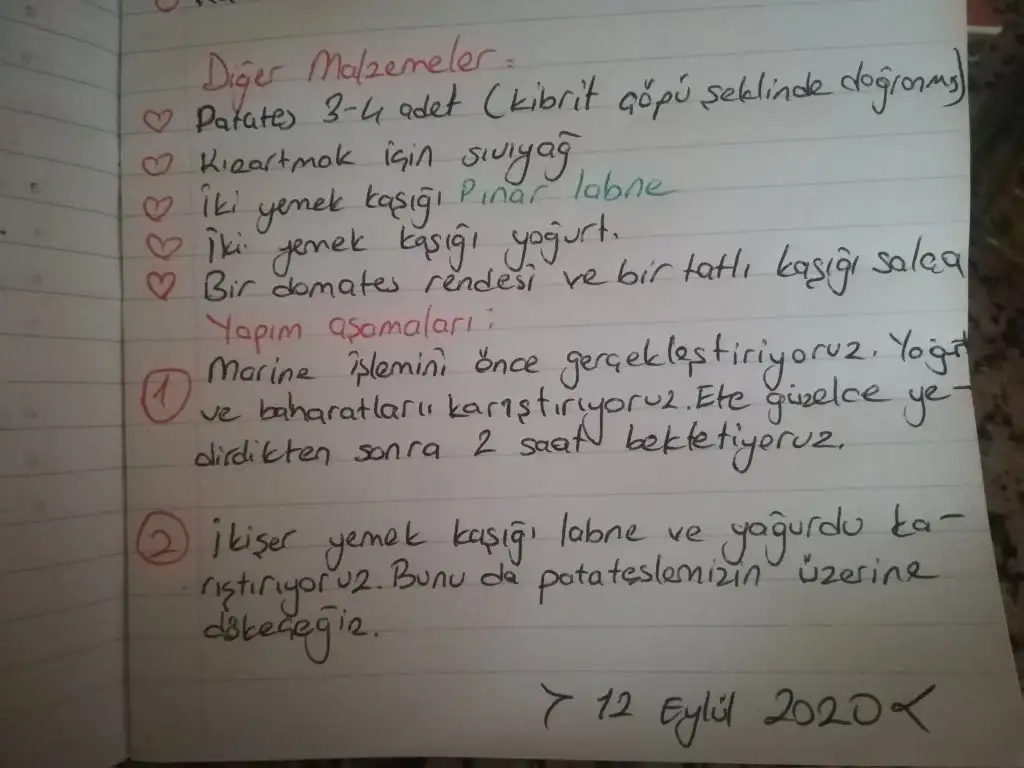 Diğer Malzemeler:
Patates 3-4 adet (kibrit çöpü şeklinde doğranmış)
Kızartmak için sıvıyağ
İki yemek kaşığı Pınar labne
İki yemek kaşığı yoğurt.
Bir domates rendesi ve bir tatlı kaşığı salça
Yapım aşamaları:
1 Marine işlemini önce gerçekleştiriyoruz. Yoğurt
ve baharatları karıştırıyoruz. Ete güzelce ye-
dirdikten sonra 2 saat bekletiyoruz.
2 İkişer yemek kaşığı labne ve yağurdu ka-
rıştırıyoruz. Bunu da patateslemizin üzerine
dökeceğiz.
> 12 Eylül 2020 <